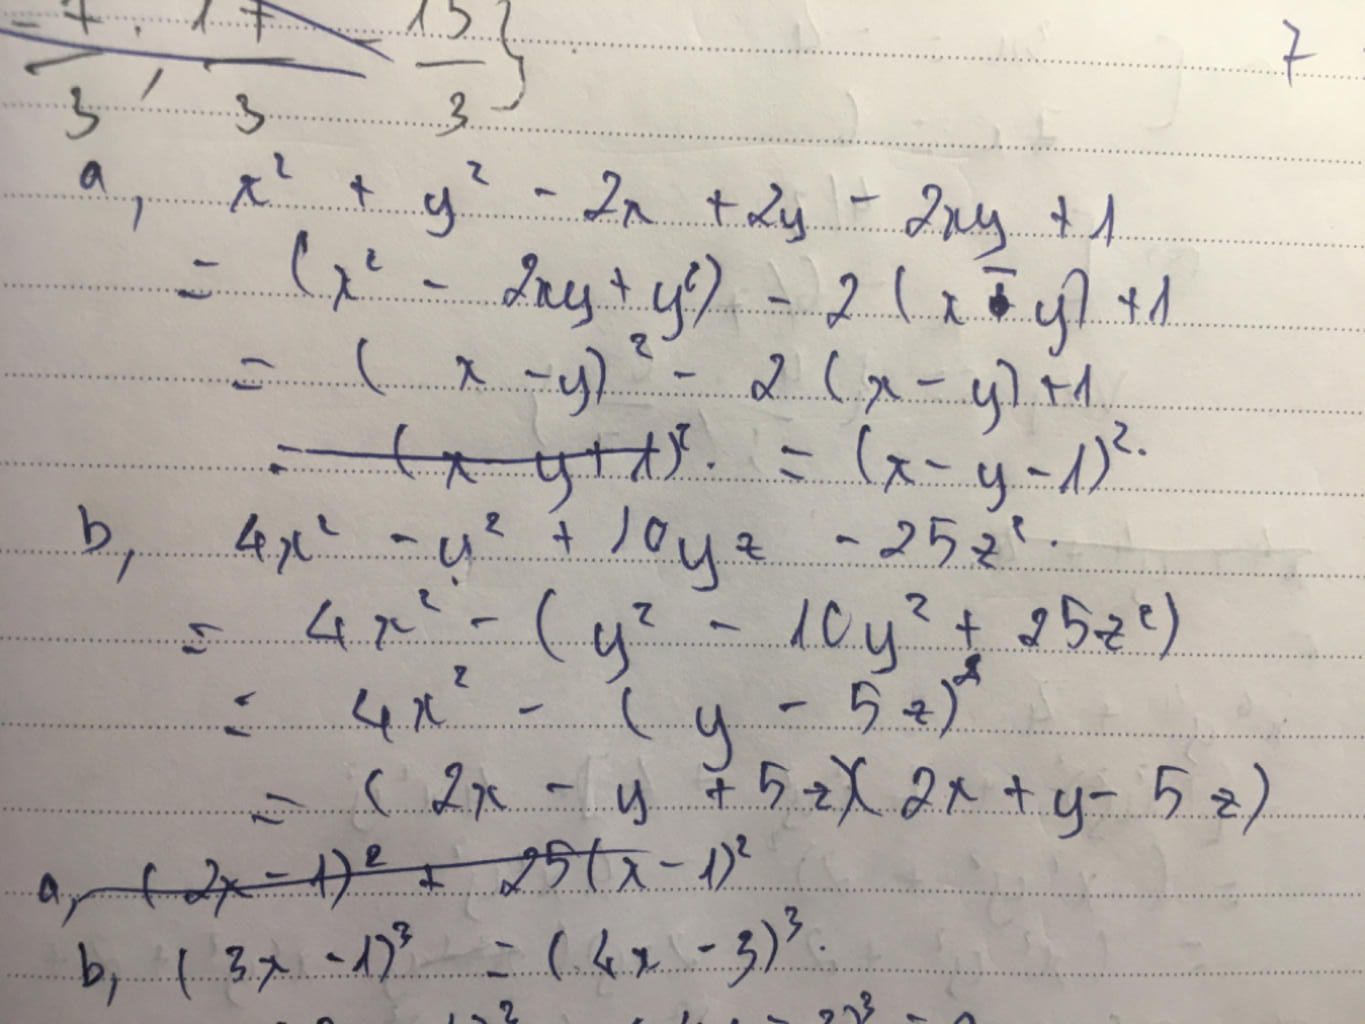 15/3}
7
3 , 3
a, x² + y² - 2x + 2y - 2xy + 1
= (x² - 2xy + y²) - 2(x - y) + 1
= (x - y)² - 2(x - y) + 1
= (x - y + 1)². = (x - y - 1)².
b, 4x² - y² + 10yz - 25z².
= 4x² - (y² - 10y² + 25z²)
= 4x² - (y - 5z)²
= (2x - y + 5z)(2x + y - 5z)
a, (2x - 1)² + 25(x - 1)²
b, (3x - 1)³ = (4x - 3)³.